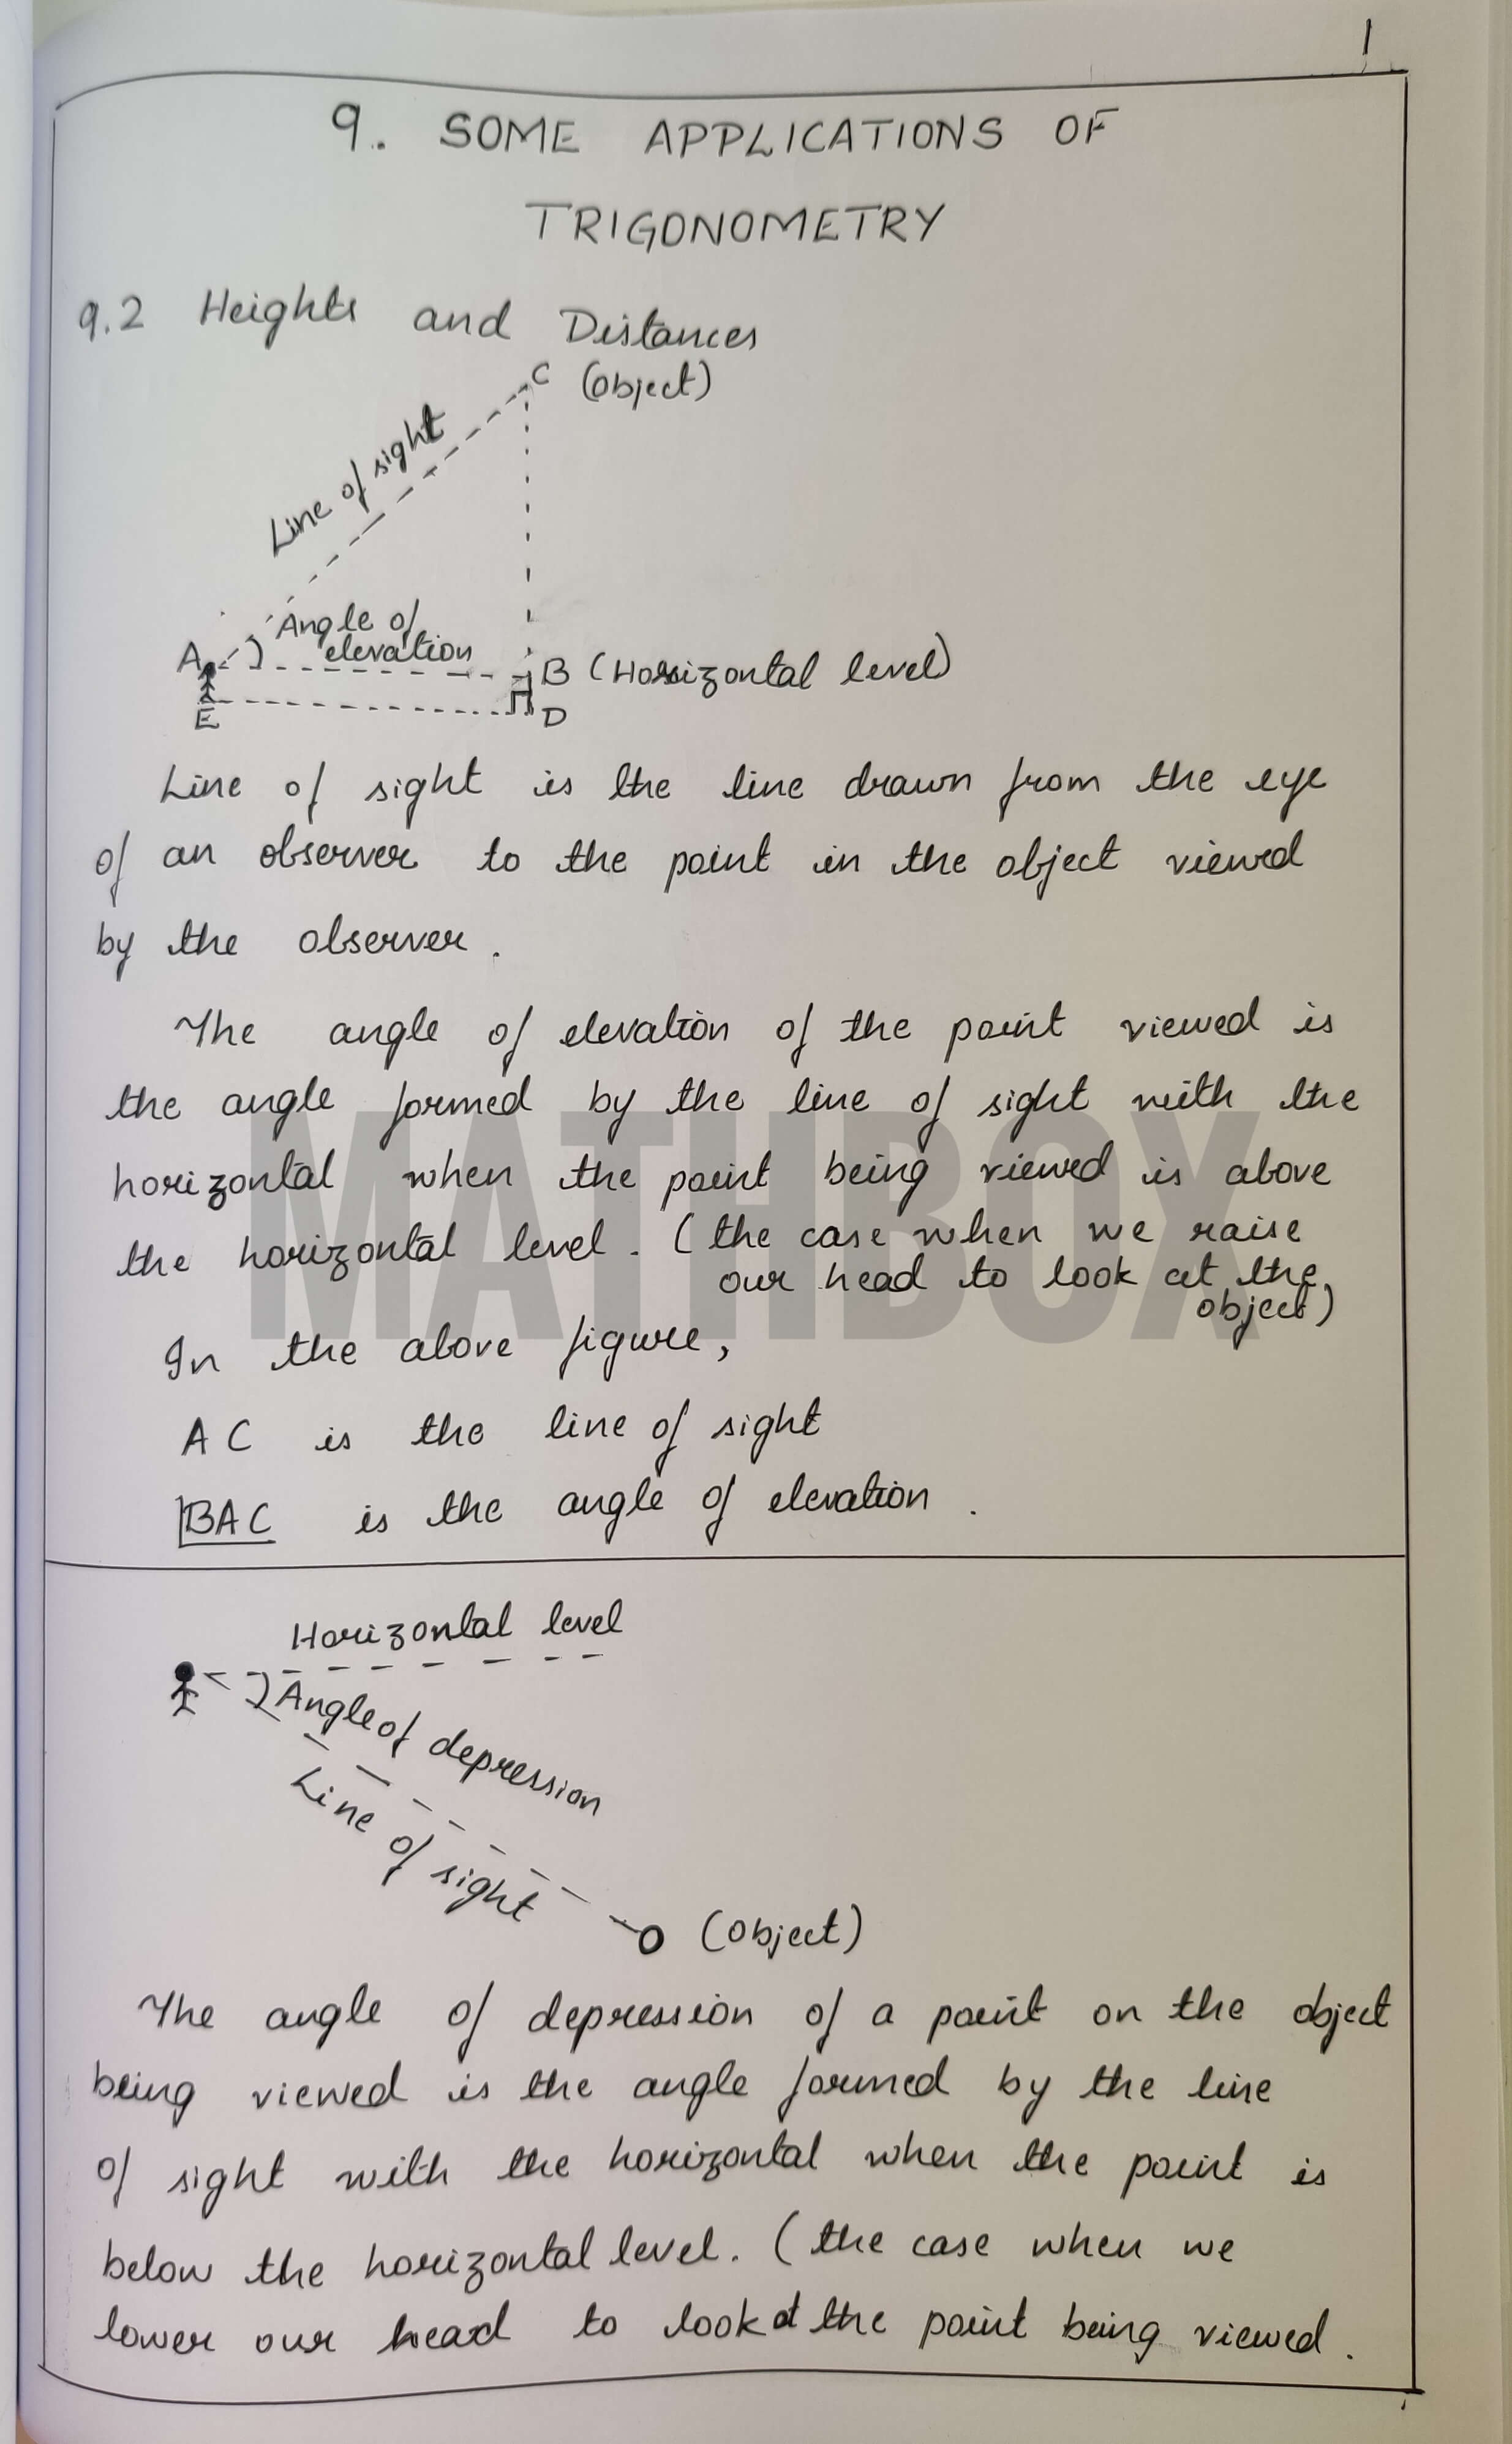 1
9. SOME APPLICATIONS OF
TRIGONOMETRY
9.2 Heights and Distances
C (Object)
Line of sight
Angle of
elevation
A
B (Horizontal level)
E
D
Line of sight is the line drawn from the eye
of an observer to the point in the object viewed
by the observer.
The angle of elevation of the point viewed is
the angle formed by the line of sight with the
horizontal when the point being viewed is above
the horizontal level. (the case when we raise
our head to look at the
object)
In the above figure,
AC is the line of sight
∠BAC is the angle of elevation.
MATHBOX
Horizontal level
Angle of depression
Line of sight
(Object)
The angle of depression of a point on the object
being viewed is the angle formed by the line
of sight with the horizontal when the point is
below the horizontal level. (the case when we
lower our head to look at the point being viewed.